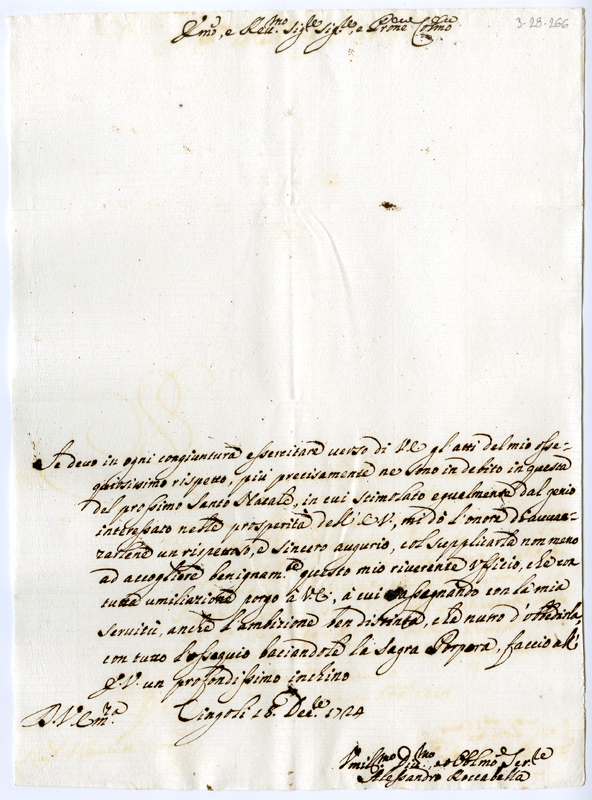 3-28-266
Emo, e Reumo Sigre Sigre, e Prone Colmo
Se devo in ogni congiuntura essercitare verso di V.E. gl'atti del mio osse-
quiosissimo rispetto, più precisamente ne sono in debito in questa
del prossimo Santo Natale, in cui stimolato egualmente dal genio
interessato nelle prosperità dell'E.V., mi dò l'onore d'avvan-
zarlene un rispettoso, e sincero augurio, col supplicarla non meno
ad accogliere benignamte questo mio riverente Ufficio, che con
tutta umiliazione porgo à V.E., à cui rassegnando con la mia
servitù, anche l'ambizione ben distinta, che nutro d'obbedirla,
con tutto l'ossequio baciandole la Sagra Porpora, faccio all'
E.V. un profondissimo inchino
D. V. Emza Cingoli 18. Decre 1724
Vmillmo Diumo, et Obblmo Serre
Alessandro Roccabella